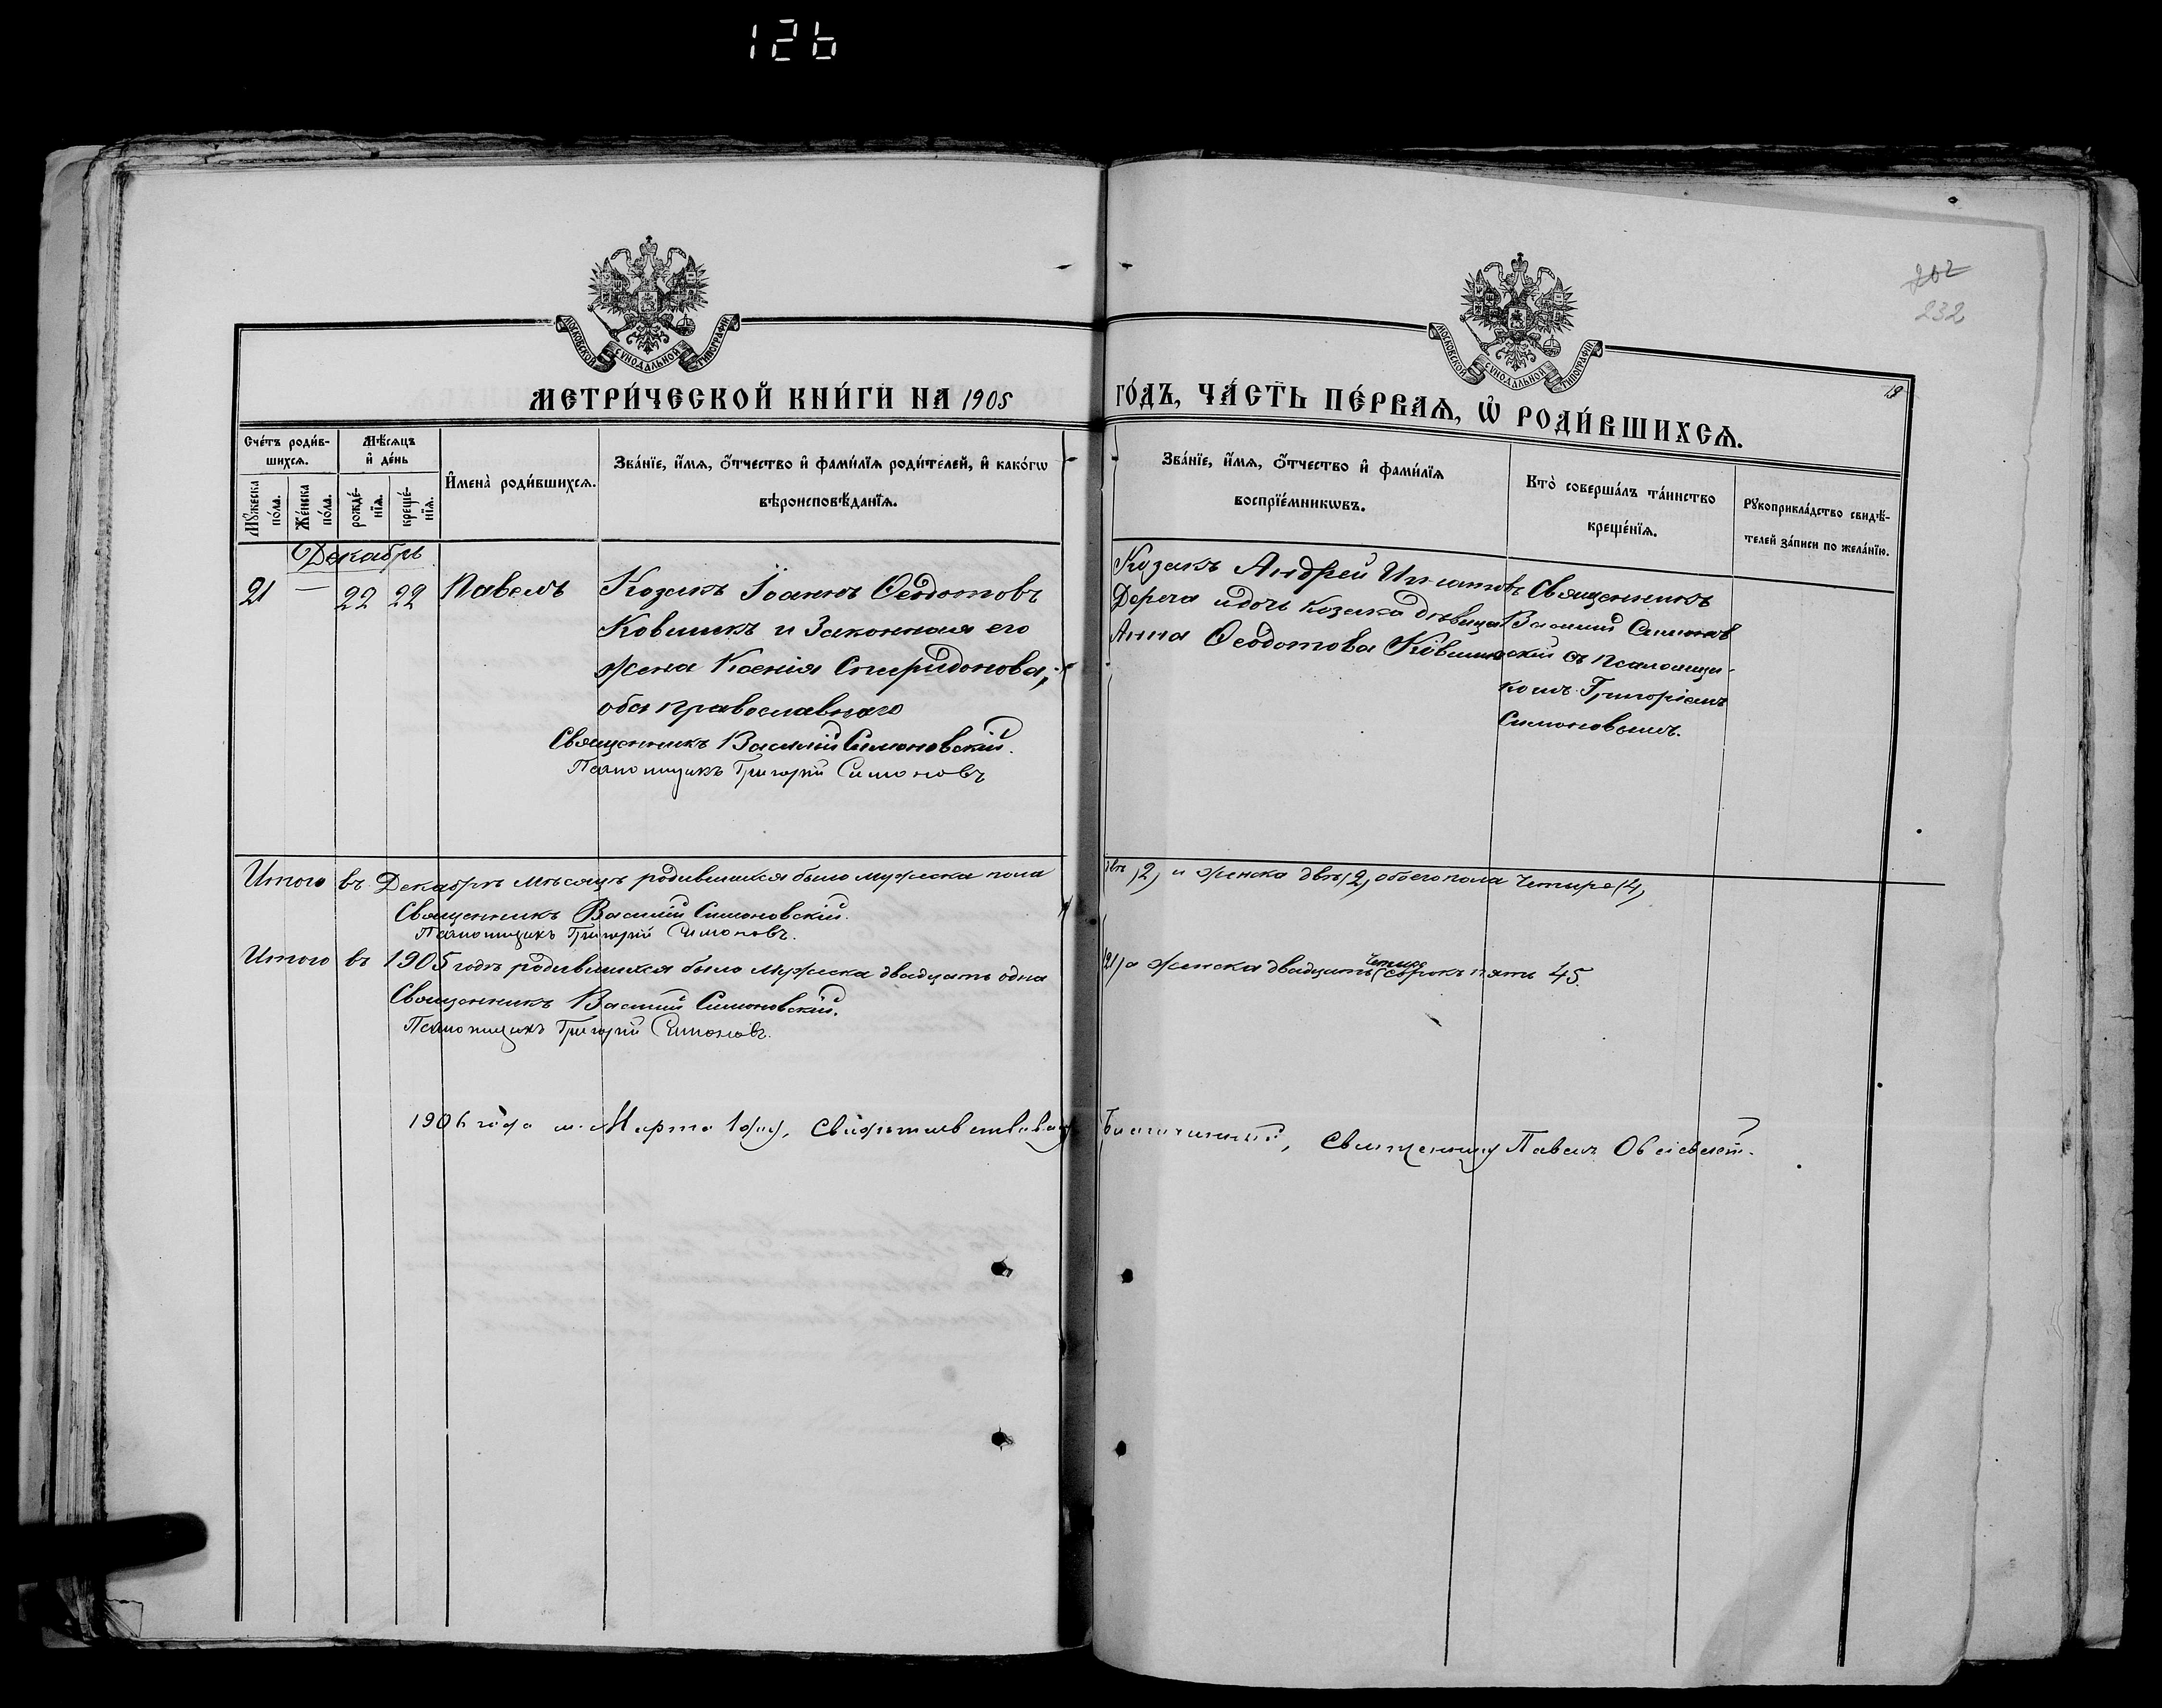 126
202
232
МОСКОВСКОЙ СѴНОДАЛЬНОЙ ТИПОГРАФІИ
МОСКОВСКОЙ СѴНОДАЛЬНОЙ ТИПОГРАФІИ
МЕТРИ́ЧЕСКОЙ КНИ́ГИ НА 1905
ГО́ДЪ, ЧА́СТЬ ПЕ́РВАѦ, Ѡ҆ РОДИ́ВШИХСѦ.
18
Сче́тъ роди́в-
шихсѧ.
Мѣ́сѧцъ
и҆ де́нь
Мꙋ́жеска
по́ла.
Же́нска
по́ла.
рожде́-
нїѧ.
креще́-
нїѧ.
И҆мена̀ роди́вшихсѧ.
Зва́нїе, и҆́мѧ, ѻ҆́тчество и҆ фами́лїѧ роди́телей, и҆ како́гѡ
вѣроисповѣ́данїѧ.
Зва́нїе, и҆́мѧ, ѻ҆́тчество и҆ фами́лїѧ
воспрїе́мникѡвъ.
Кто̀ соверша́лъ та́инство
креще́нїѧ.
Рꙋкоприкла́дство свидѣ́-
телей за́писи по жела́нїю.
Декабрь
21 — 22 22 Павелъ
Козакъ Іоаннъ Ѳеодотовъ
Ковшикъ и Законная его
жена Ксенія Спиридонова,
оба православнаго
Священникъ Василій Симоновскій.
Псаломщикъ Григорій Симоновъ
Козакъ Андрей Игнатовъ
Дереча и дочь Козака дѣвица
Анна Ѳеодотова Ковшикъ
Священникъ
Василій Симонов
скій съ псаломщи-
комъ Григоріемъ
Симоновымъ.
Итого въ Декабрѣ мѣсяцѣ родившихся было мужеска пола
двѣ /2/ и женска двѣ /2/ обоего пола четыре /4/
Священникъ Василій Симоновскій.
Псаломщикъ Григорій Симоновъ.
Итого въ 1905 годѣ родившихся было Мужеска двадцать одна
/21/ а женска двадцать четыре (сорокъ пять 45.
Священникъ Василій Симоновскій.
Псаломщикъ Григорій Симоновъ.
1906 года м. Марта 1 дня, свидѣтельствовалъ
Благочинный, Священникъ Павелъ